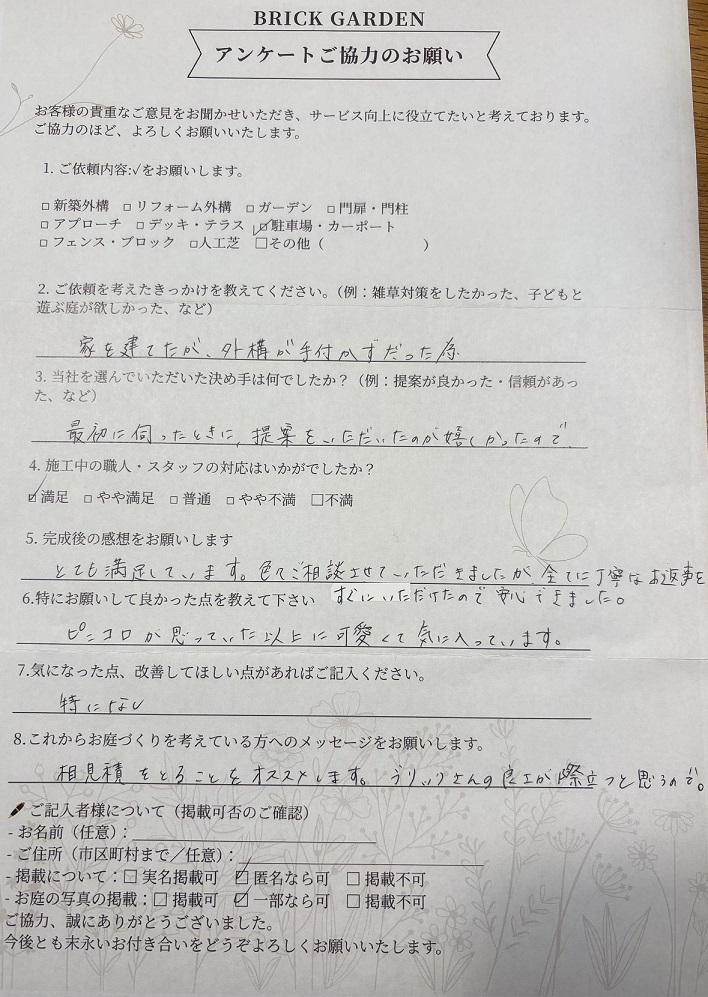 BRICK GARDEN
アンケートご協力のお願い
お客様の貴重なご意見をお聞かせいただき、サービス向上に役立てたいと考えております。
ご協力のほど、よろしくお願いいたします。
1. ご依頼内容:✓をお願いします。
□ 新築外構 □ リフォーム外構 □ ガーデン □ 門扉・門柱
□ アプローチ □ デッキ・テラス ☑ 駐車場・カーポート
□ フェンス・ブロック □人工芝 □その他（ ）
2. ご依頼を考えたきっかけを教えてください。（例：雑草対策をしたかった、子どもと
遊ぶ庭が欲しかった、など）
家を建てたが、外構が手付かずだった為
3. 当社を選んでいただいた決め手は何でしたか？（例：提案が良かった・信頼があっ
た、など）
最初に伺ったときに、提案をいただいたのが嬉しかったので
4. 施工中の職人・スタッフの対応はいかがでしたか？
☑ 満足 □ やや満足 □ 普通 □ やや不満 □不満
5. 完成後の感想をお願いします
とても満足しています。色々ご相談させていただきましたが 全てに丁寧なお返事を
すぐにいただけたので安心できました。
6.特にお願いして良かった点を教えて下さい
ピンコロが思っていた以上に可愛くて気に入っています。
7.気になった点、改善してほしい点があればご記入ください。
特になし
8.これからお庭づくりを考えている方へのメッセージをお願いします。
相見積をとることをオススメします。さんの良さが際立つと思うので。
ご記入者様について（掲載可否のご確認）
- お名前（任意）：
- ご住所（市区町村まで／任意）：
- 掲載について：□ 実名掲載可 ☑ 匿名なら可 □ 掲載不可
- お庭の写真の掲載：□ 掲載可 ☑ 一部なら可 □ 掲載不可
ご協力、誠にありがとうございました。
今後とも末永いお付き合いをどうぞよろしくお願いいたします。